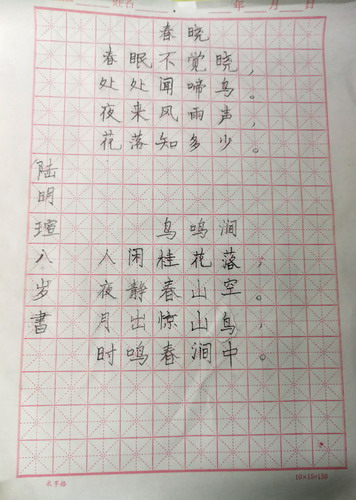 姓名 年 月 日
春晓
春眠不觉晓，
处处闻啼鸟。
夜来风雨声，
花落知多少。
鸟鸣涧
人闲桂花落，
夜静春山空。
月出惊山鸟，
时鸣春涧中。
陆明瑄八岁书
米字格 10×15=150